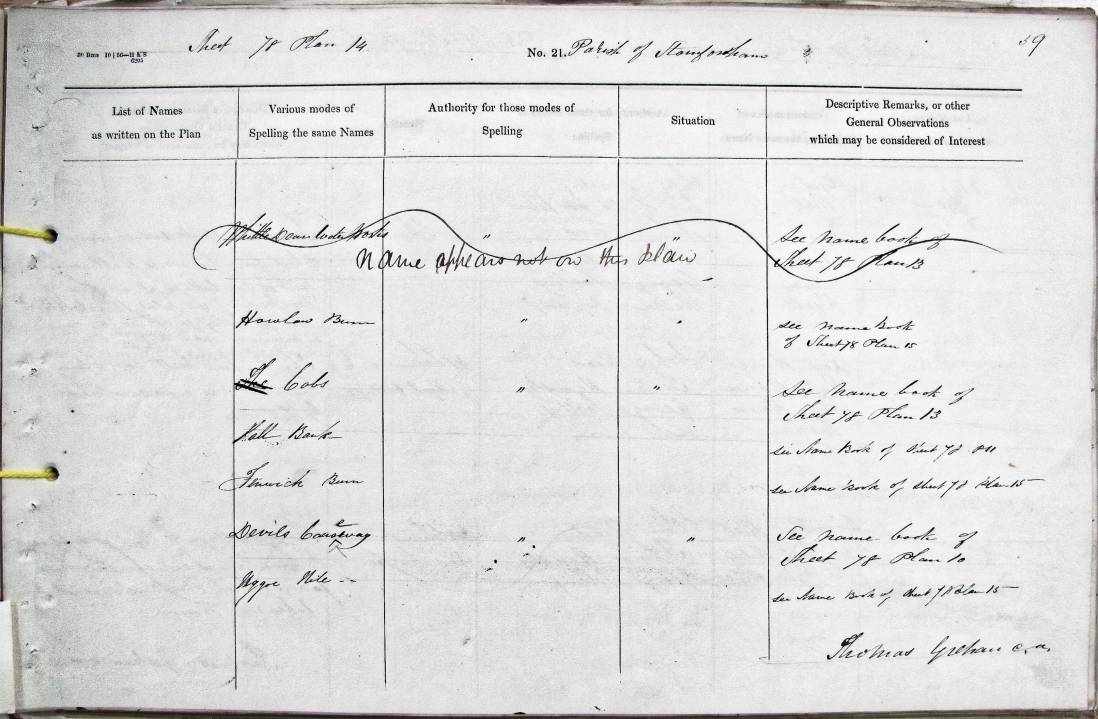 Sheet 78 Plan 14
No. 21. Parish of Stamfordham
59
List of Names
as written on the Plan
Various modes of
Spelling the same Names
Authority for those modes of
Spelling
Situation
Descriptive Remarks, or other
General Observations
which may be considered of Interest
Whittle Dean Water Works " " See Name book of
Sheet 78 Plan 13
Name appears not on this plan
Howlaw Burn " " see Name Book
of Sheet 78 Plan 15
The Cobs " " See Name book of
Sheet 78 Plan 13
Hall Bank see Name Book of Sheet 78 P 11
Fenwick Burn see Name Book of Sheet 78 Plan 15
Devils Causeway " " See Name book of
Sheet 78 Plan 10
see Name Book of Sheet 78 Plan 15
Thomas c.a.